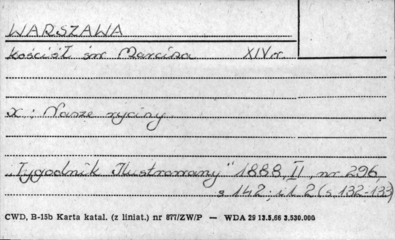 WARSZAWA
kościół św Marcina XIV w.
x : Nasze ryciny
„Tygodnik Ilustrowany" 1888 II, nr 296,
s 142; s 1.2 (s. 132-133)
CWD, B-15b Karta katal. (z liniat.) nr 877/ZW/P — WDA 29 13.5.66 3.530.000